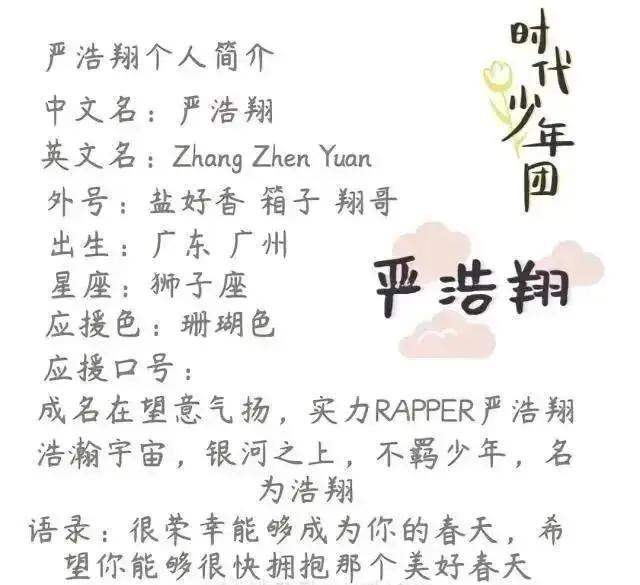 严浩翔个人简介
中文名：严浩翔
英文名：Zhang Zhen Yuan
外号：盐好香 箱子 翔哥
出生：广东 广州
星座：狮子座
应援色：珊瑚色
应援口号：
成名在望意气扬，实力RAPPER严浩翔
浩瀚宇宙，银河之上，不羁少年，名
为浩翔
语录：很荣幸能够成为你的春天，希
望你能够很快拥抱那个美好春天
时代少年团
严浩翔